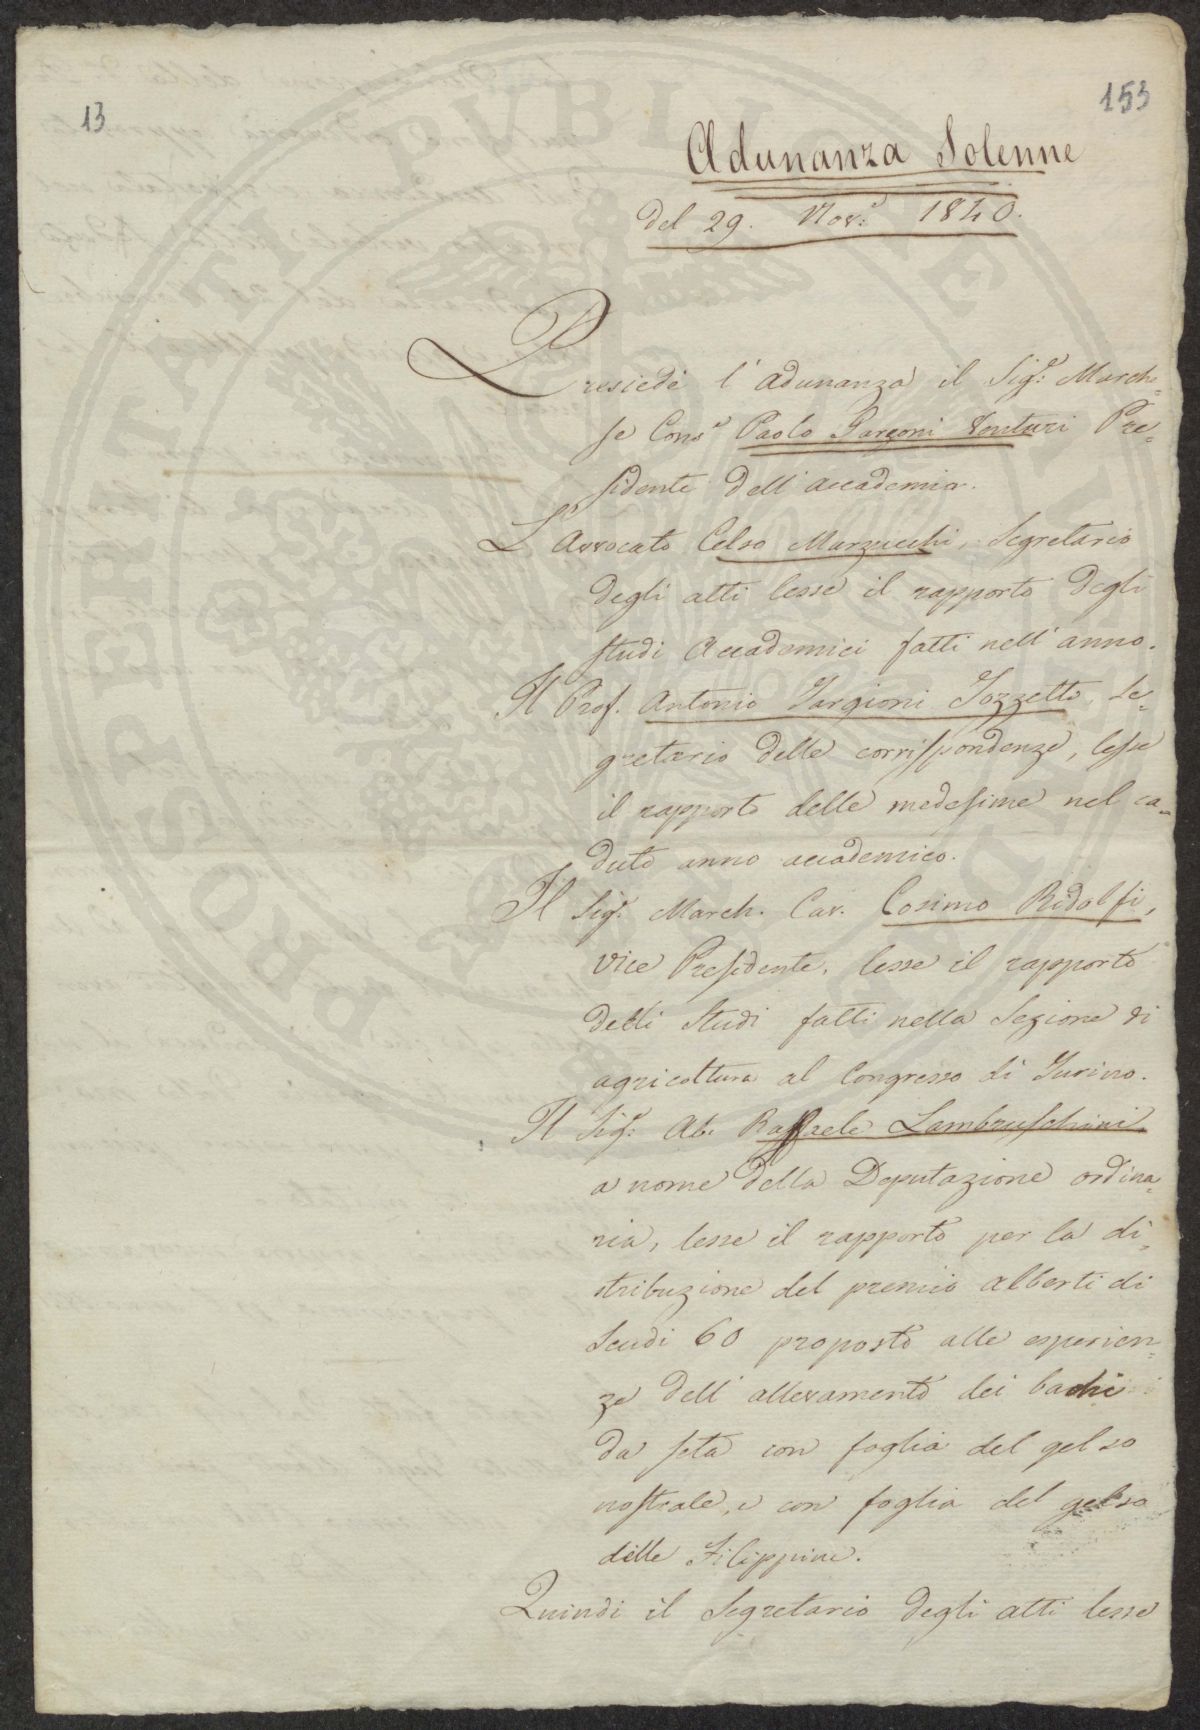 13
153
Adunanza Solenne
del 29. Nov.e 1840.
Presiedè l'Adunanza il Sig.r Marche=
se Cons.e Paolo Garzoni Venturi Pre=
sidente dell'Accademia.
L'Avvocato Celso Marzucchi, Segretario
degli atti lesse il rapporto degli
studi Accademici fatti nell'anno.
Il Prof. Antonio Targioni Tozzetti, Se=
gretario delle corrispondenze, lesse
il rapporto delle medesime nel ca=
duto anno accademico.
Il Sig.r March. Cav. Cosimo Ridolfi,
vice Presidente, lesse il rapporto
delli Studi fatti nella Sezione di
agricoltura al Congresso di Turino.
Il Sig.r Ab. Raffaele Lambruschini
a nome della Deputazione ordina=
ria, lesse il rapporto per la di=
stribuzione del premio Alberti di
Scudi 60 proposto alle esperien=
ze dell'allevamento dei bachi
da seta con foglia del gelso
nostrale, e con foglia del gelso
delle Filippine.
Quindi il Segretario degli atti lesse
PROSPERITATI PUBLICAE AUGENDAE